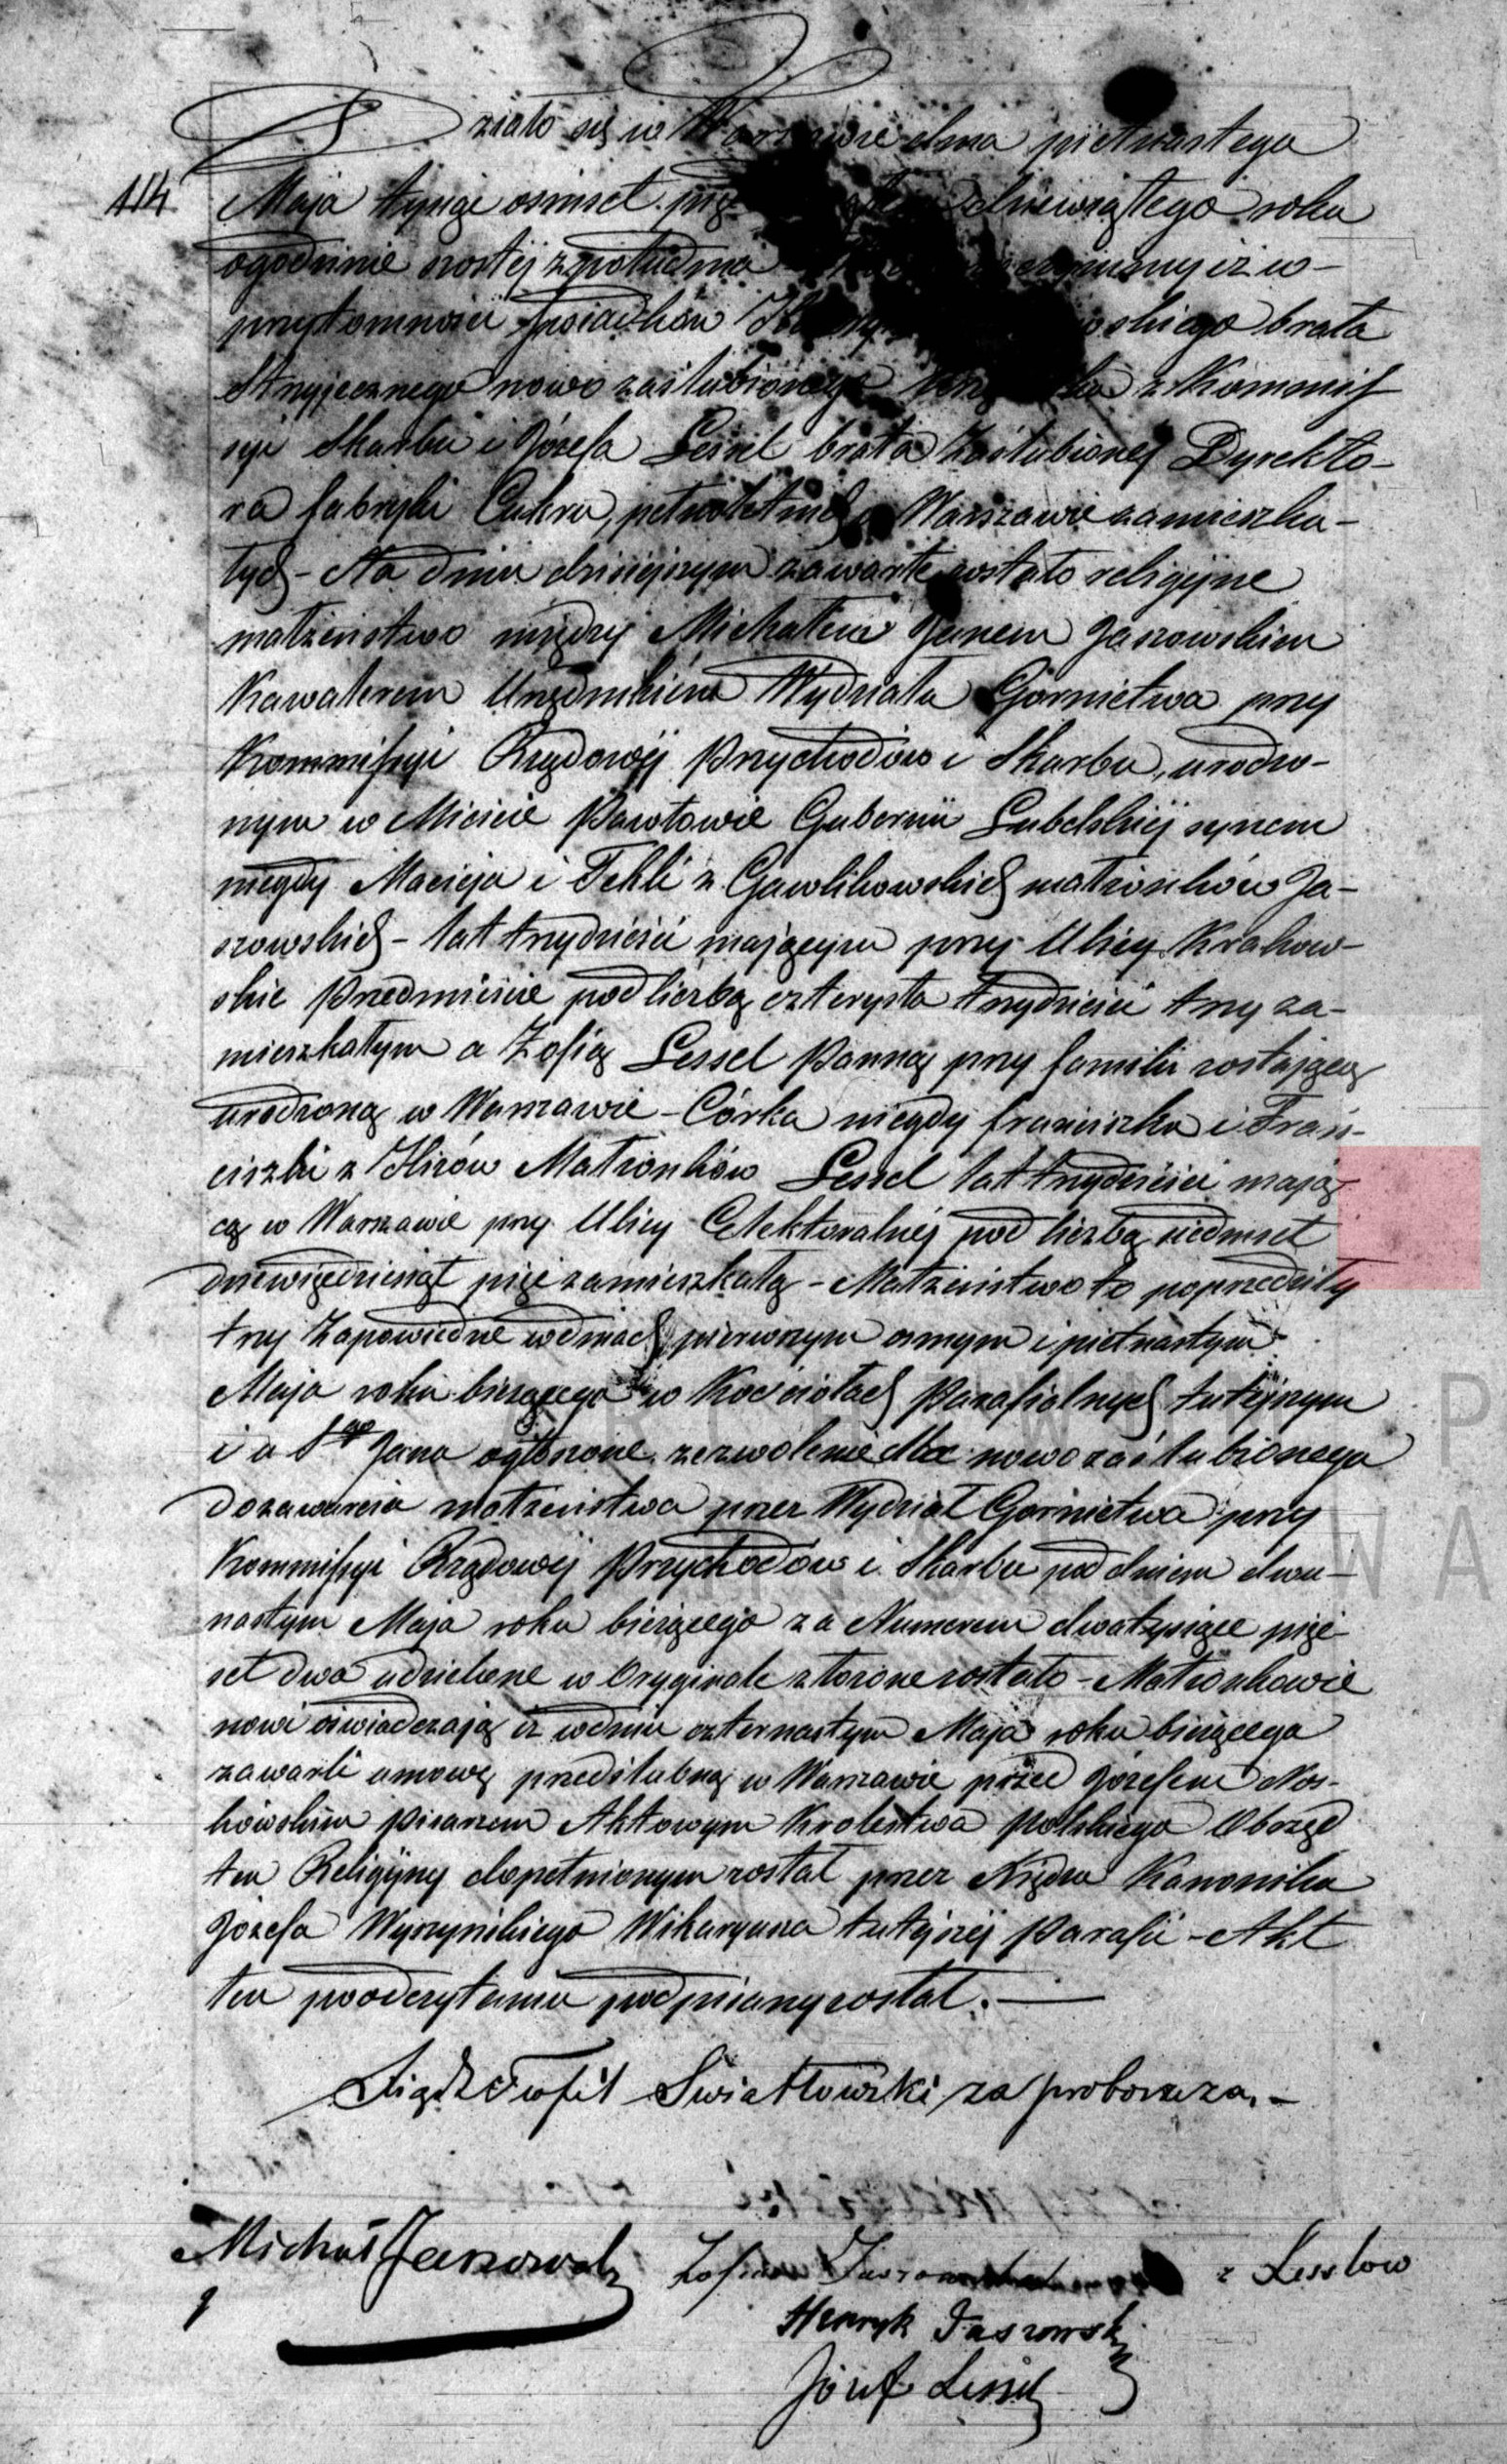 Działo się w Warszawie dnia piętnastego
114 Maja tysiąc ośmset pięć dziewiątego roku
ogodzinie szostéj zpołudnia iż w-
przytomności Swiadków skiego brata
Stryjecznego nowo zaślubionego z Kommis-
syi Skarbu i Józefa Lessel brata Zaślubionej Dyrekto-
ra fabryki Cukru, pełnoletnich w Warszawie zamieszka-
łych - Na dniu dzisiejszym zawarte zostało religijne
małżeństwo między Michałem Janem Jaszowskim
Kawalerem Urzędnikiem Wydziału Gornictwa przy
Kommissyi Rządowéj Przychodów i Skarbu, urodzo-
nym w Mieście Pawłowie Gubernii Lubelskiéj synem
niegdy Macieja i Tekli z Gawlikowskich małżonków Ja-
szowskich - lat trzydzieści mającym przy Ulicy Krakow-
skie Przedmieście pod liczbą czterysta trzydzieści trzy za-
mieszkałym a Zofią Lessel Panną przy familii zostającą
urodzoną w Warszawie - Córka niegdy franciszka i Fran-
ciszki z Hizów Małżonków Lessel lat trzydzieści mają-
cą w Warszawie przy Ulicy Elektoralnéj pod liczbą siedmset
dziewięćdziesiąt pięć zamieszkałą - Małżeństwo to poprzedziły
trzy Zapowiedzie wdniach pierwszym osmym i piętnastym
Maja roku bieżącego w Kościołach Parafialnych tutéjszym
i u Sgo Jana ogłoszone. zezwolenie dla nowozaślubionego
dozawarcia małżeństwa przez Wydział Gornictwa przy
Kommissyi Rządowéj Przychodów i Skarbu pod dniem dwu-
nastym Maja roku bieżącego za Numerem dwatysiące pięć-
set dwa udzielone w Oryginale złożone zostało - Małżonkowie
nowi oświadczają iż wdniu czternastym Maja roku bieżącego
zawarli umowę przedślubną w Warszawie przed Józefem Nos-
kowskim Pisarzem Aktowym Krolestwa Polskiego Obrzęd
ten Religijny dopełnionym został przez Xiędza Kanonika
Józefa Wyszyńskiego Wikaryusza tutéjszéj Parafii - Akt
ten poodczytaniu podpisany został. -
Xiądz Teofil Swiatłowski za proboszcza. -
Michał Jaszowski Zofia Jaszowska z Lesslow
Henryk Jaszowski
Józef Lessel